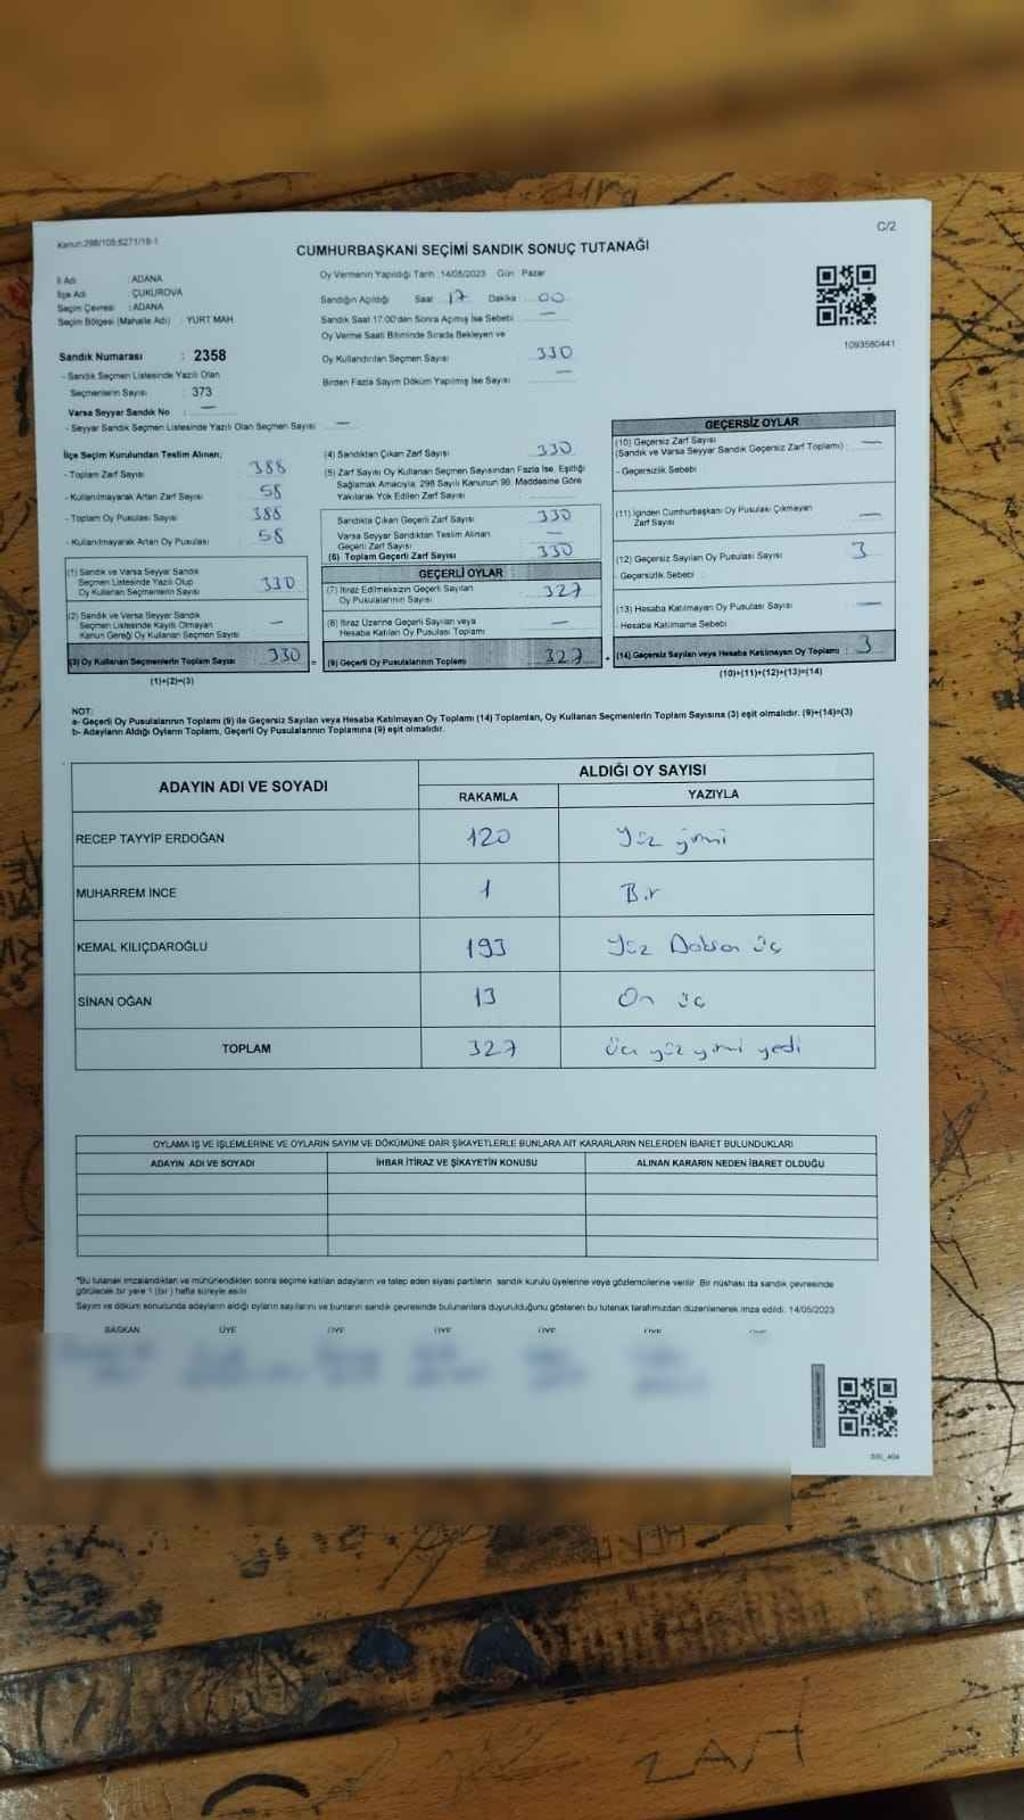 Kanun:298/105;6271/19-1
C/2
CUMHURBAŞKANI SEÇİMİ SANDIK SONUÇ TUTANAĞI
İl Adı : ADANA
İlçe Adı : ÇUKUROVA
Seçim Çevresi : ADANA
Seçim Bölgesi (Mahalle Adı) : YURT MAH.
Sandık Numarası : 2358
- Sandık Seçmen Listesinde Yazılı Olan
Seçmenlerin Sayısı : 373
Varsa Seyyar Sandık No : —
- Seyyar Sandık Seçmen Listesinde Yazılı Olan Seçmen Sayısı : —
Oy Vermenin Yapıldığı Tarih :14/05/2023 Gün : Pazar
Sandığın Açıldığı Saat 17 Dakika : 00
Sandık Saat 17:00'den Sonra Açılmış İse Sebebi : —
Oy Verme Saati Bitiminde Sırada Bekleyen ve
Oy Kullandırılan Seçmen Sayısı 330
Birden Fazla Sayım Döküm Yapılmış İse Sayısı —
1093580441
İlçe Seçim Kurulundan Teslim Alınan;
- Toplam Zarf Sayısı 388
- Kullanılmayarak Artan Zarf Sayısı 58
- Toplam Oy Pusulası Sayısı 388
- Kullanılmayarak Artan Oy Pusulası 58
(1) Sandık ve Varsa Seyyar Sandık
Seçmen Listesinde Yazılı Olup
Oy Kullanan Seçmenlerin Sayısı 330
(2) Sandık ve Varsa Seyyar Sandık
Seçmen Listesinde Kayıtlı Olmayan
Kanun Gereği Oy Kullanan Seçmen Sayısı —
(3) Oy Kullanan Seçmenlerin Toplam Sayısı 330
(1)+(2)=(3)
(4) Sandıktan Çıkan Zarf Sayısı 330
(5) Zarf Sayısı Oy Kullanan Seçmen Sayısından Fazla İse, Eşitliği
Sağlamak Amacıyla, 298 Sayılı Kanunun 98. Maddesine Göre
Yakılarak Yok Edilen Zarf Sayısı
Sandıkta Çıkan Geçerli Zarf Sayısı 330
Varsa Seyyar Sandıktan Teslim Alınan
Geçerli Zarf Sayısı —
(6) Toplam Geçerli Zarf Sayısı 330
GEÇERLİ OYLAR
(7) İtiraz Edilmeksizin Geçerli Sayılan
Oy Pusulalarının Sayısı 327
(8) İtiraz Üzerine Geçerli Sayılan veya
Hesaba Katılan Oy Pusulası Toplamı —
= (9) Geçerli Oy Pusulalarının Toplamı 327
GEÇERSİZ OYLAR
(10) Geçersiz Zarf Sayısı
(Sandık ve Varsa Seyyar Sandık Geçersiz Zarf Toplamı) —
- Geçersizlik Sebebi
(11) İçinden Cumhurbaşkanı Oy Pusulası Çıkmayan
Zarf Sayısı —
(12) Geçersiz Sayılan Oy Pusulası Sayısı 3
- Geçersizlik Sebebi
(13) Hesaba Katılmayan Oy Pusulası Sayısı —
- Hesaba Katılmama Sebebi
+ (14) Geçersiz Sayılan veya Hesaba Katılmayan Oy Toplamı : 3
(10)+(11)+(12)+(13)=(14)
NOT:
a- Geçerli Oy Pusulalarının Toplamı (9) ile Geçersiz Sayılan veya Hesaba Katılmayan Oy Toplamı (14) Toplamları, Oy Kullanan Seçmenlerin Toplam Sayısına (3) eşit olmalıdır. (9)+(14)=(3)
b- Adayların Aldığı Oyların Toplamı, Geçerli Oy Pusulalarının Toplamına (9) eşit olmalıdır.
ADAYIN ADI VE SOYADI
ALDIĞI OY SAYISI
RAKAMLA YAZIYLA
RECEP TAYYİP ERDOĞAN 120 Yüz yirmi
MUHARREM İNCE 1 Bir
KEMAL KILIÇDAROĞLU 193 Yüz Doksan üç
SİNAN OĞAN 13 On üç
TOPLAM 327 üç yüz yirmi yedi
OYLAMA İŞ VE İŞLEMLERİNE VE OYLARIN SAYIM VE DÖKÜMÜNE DAİR ŞİKAYETLERLE BUNLARA AİT KARARLARIN NELERDEN İBARET BULUNDUKLARI
ADAYIN ADI VE SOYADI İHBAR İTİRAZ VE ŞİKAYETİN KONUSU ALINAN KARARIN NEDEN İBARET OLDUĞU
*Bu tutanak imzalandıktan ve mühürlendikten sonra seçime katılan adayların ve talep eden siyasi partilerin sandık kurulu üyelerine veya gözlemcilerine verilir. Bir nüshası da sandık çevresinde
görülecek bir yere 1 (bir) hafta süreyle asılır.
Sayım ve döküm sonucunda adayların aldığı oyların sayılarını ve bunların sandık çevresinde bulunanlara duyurulduğunu gösteren bu tutanak tarafımızdan düzenlenerek imza edildi. 14/05/2023
BAŞKAN ÜYE ÜYE ÜYE ÜYE ÜYE